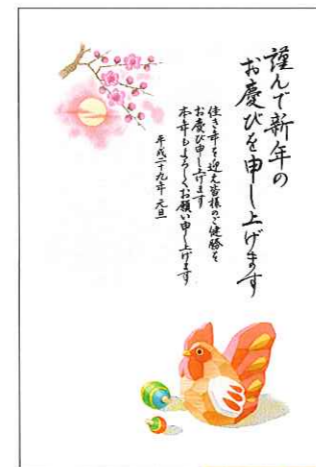 謹んで新年の
お慶びを申し上げます
佳き年を迎え皆様のご健勝を
お慶び申し上げます
本年もよろしくお願い申し上げます
平成二十九年 元旦